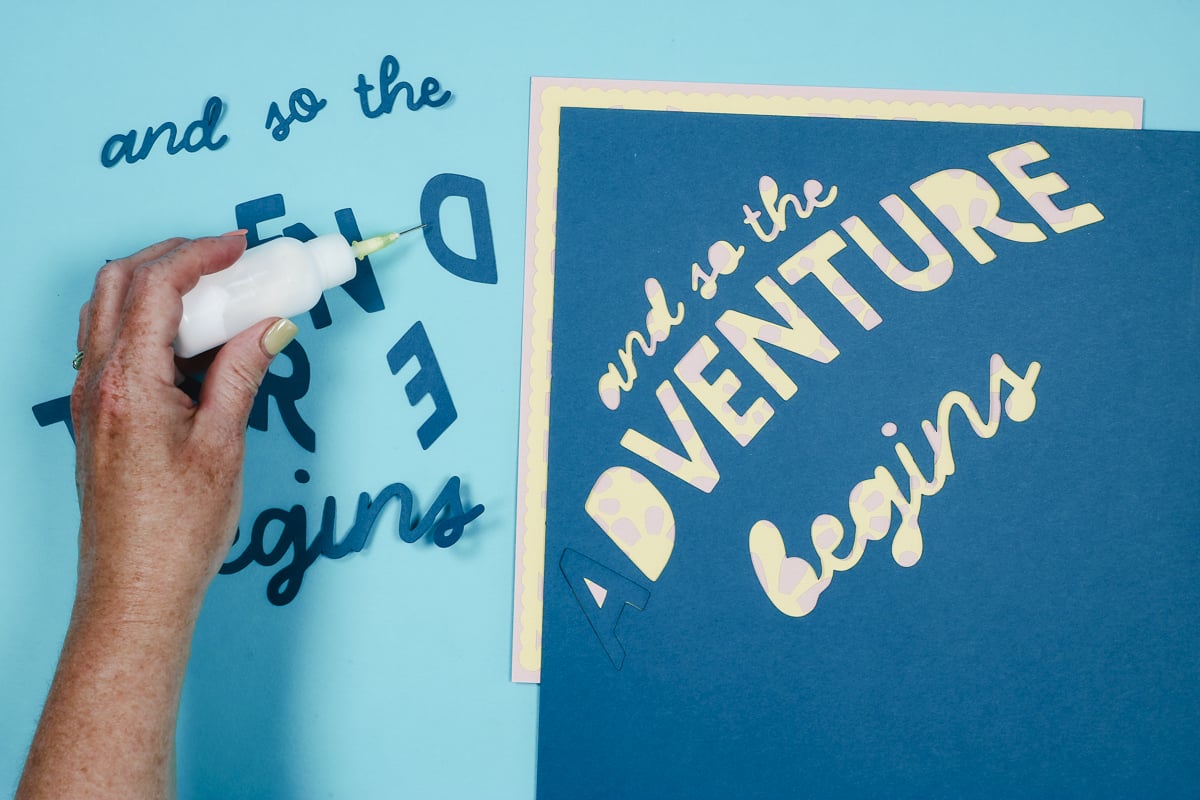 and so the
E N D
R E
T
egins
and so the
ADVENTURE
begins